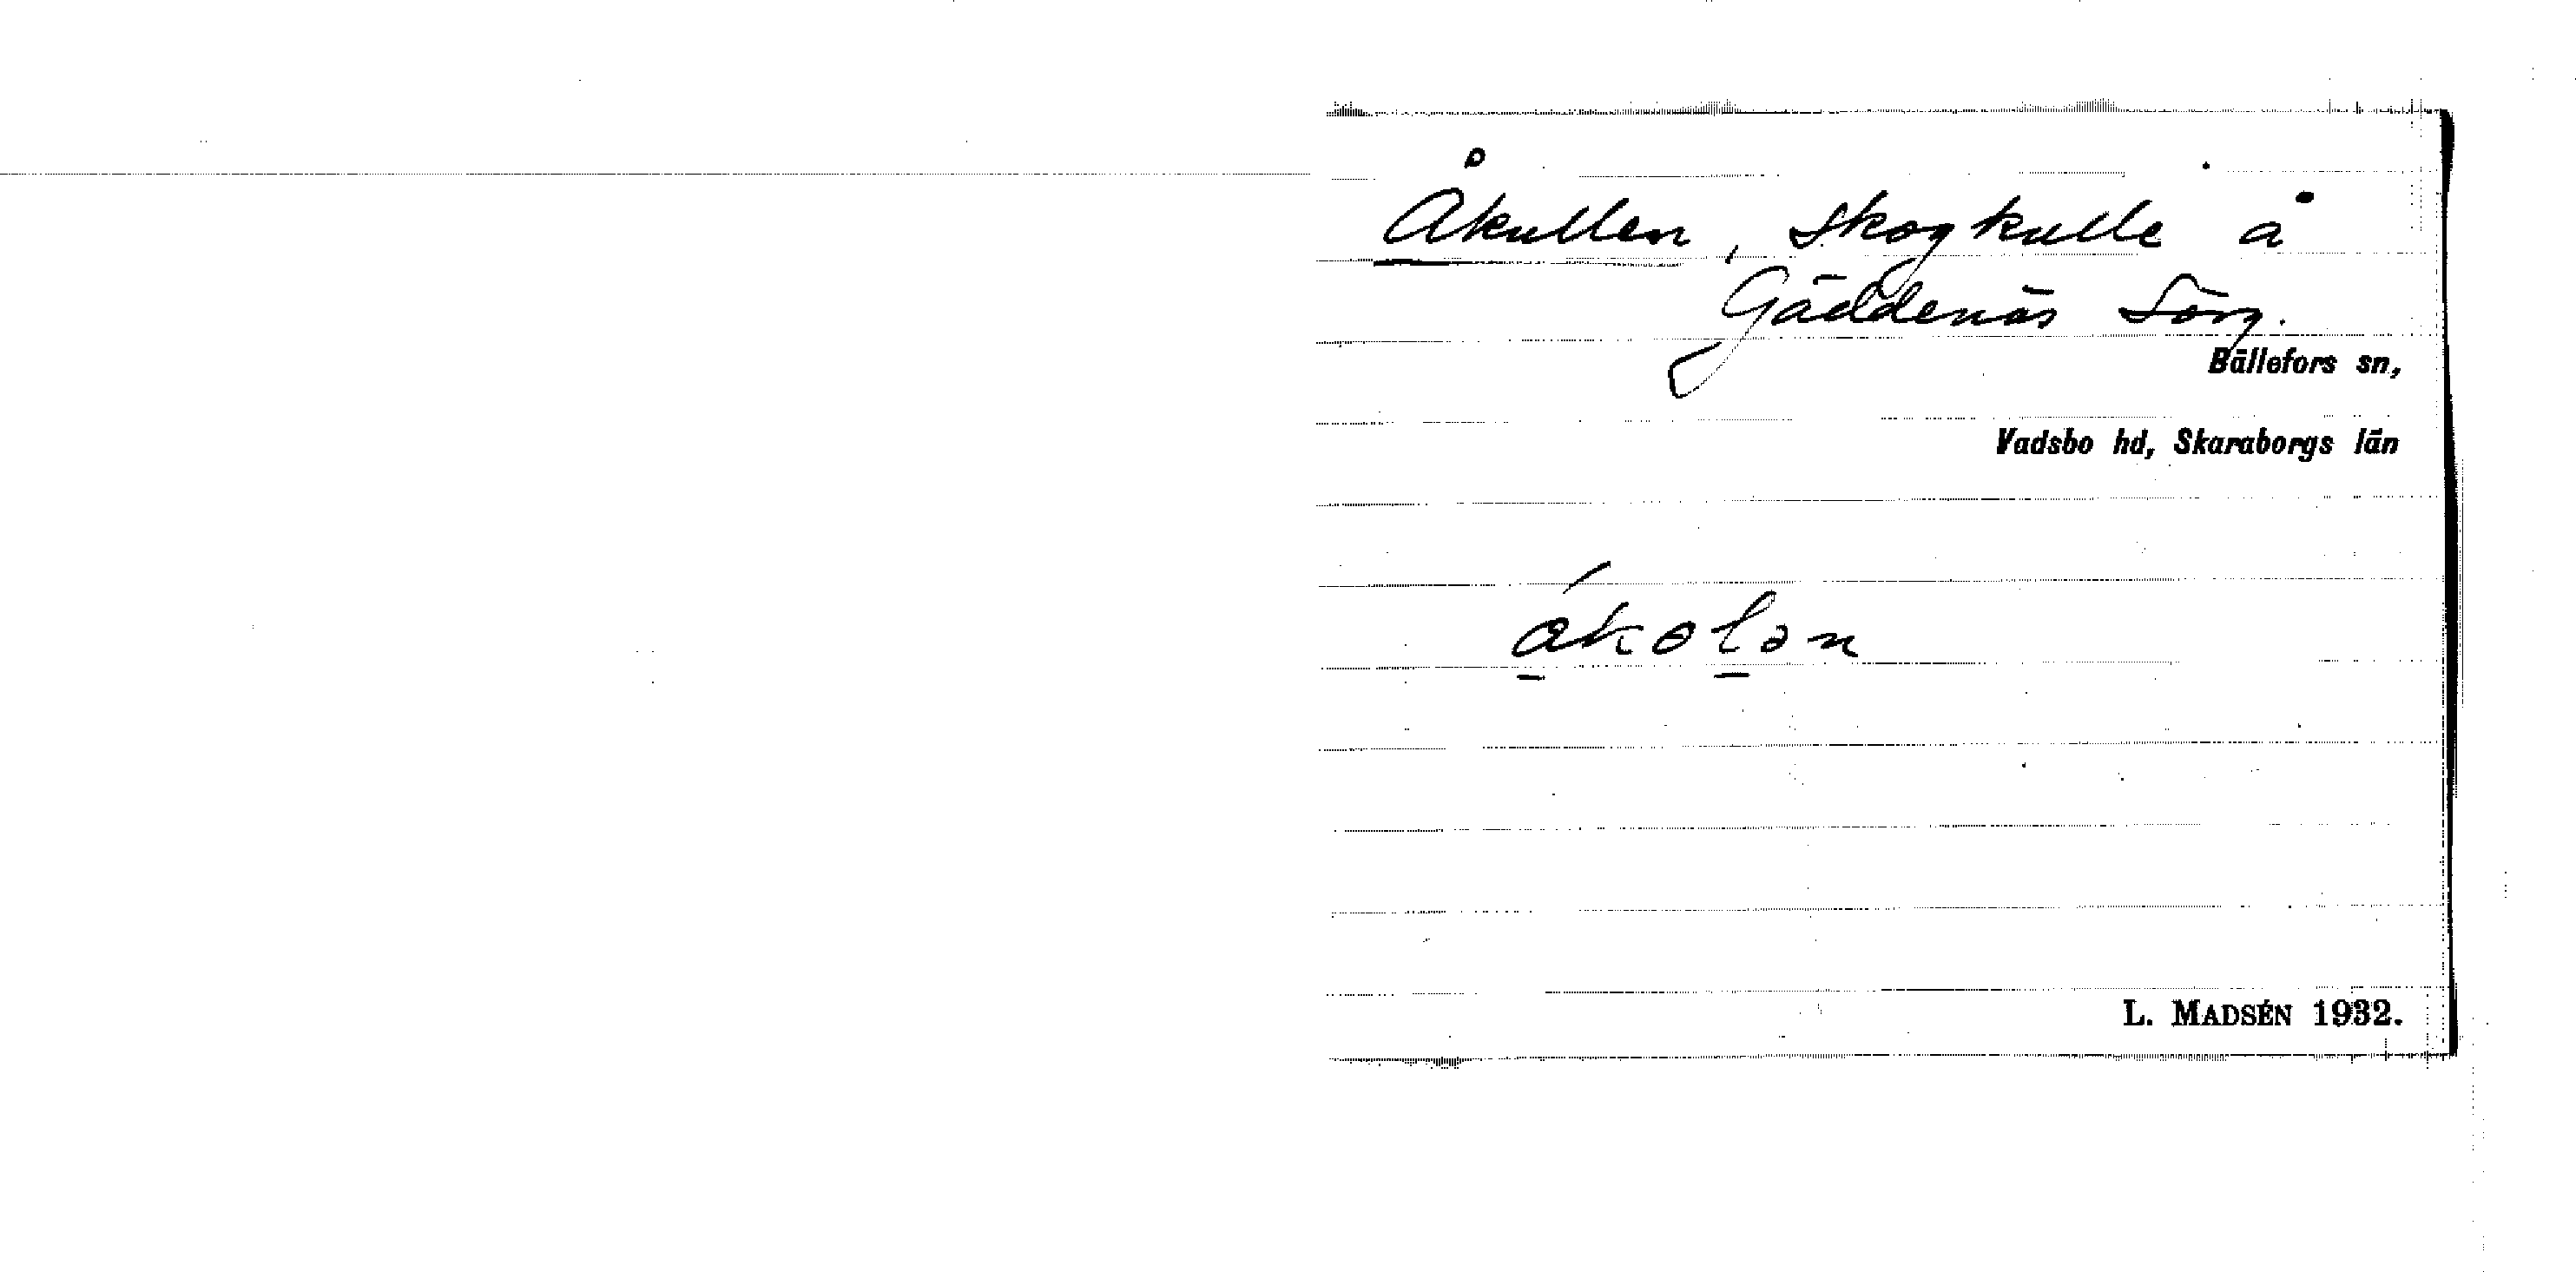 Åkullen, skogkulle å
Gäddenäs Sörg.
Bällefors sn,
Vadsbo hd, Skaraborgs län
ákolən
L. MADSÉN 1932.